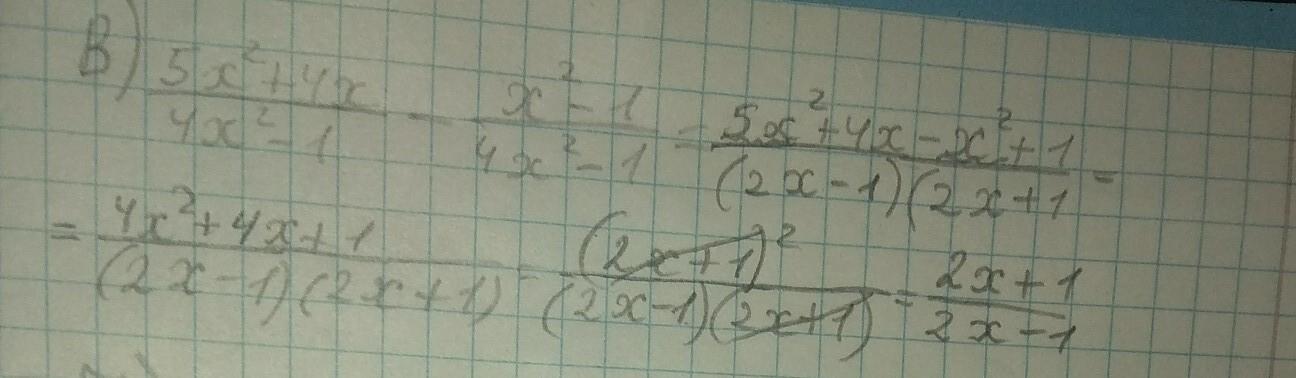 В) (5x²+4x)/(4x²-1) - (x²-1)/(4x²-1) = (5x²+4x-x²+1)/((2x-1)(2x+1) =
= (4x²+4x+1)/((2x-1)(2x+1)) = (2x+1)²/((2x-1)(2x+1)) = (2x+1)/(2x-1)